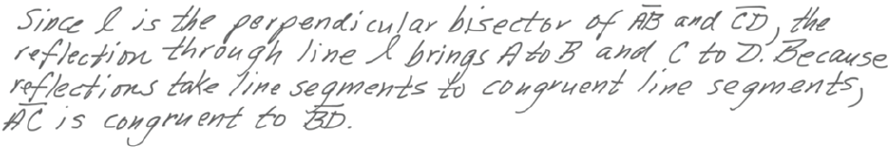 Since l is the perpendicular bisector of A̅B̅ and C̅D̅, the
reflection through line l brings A to B and C to D. Because
reflections take line segments to congruent line segments,
A̅C̅ is congruent to B̅D̅.